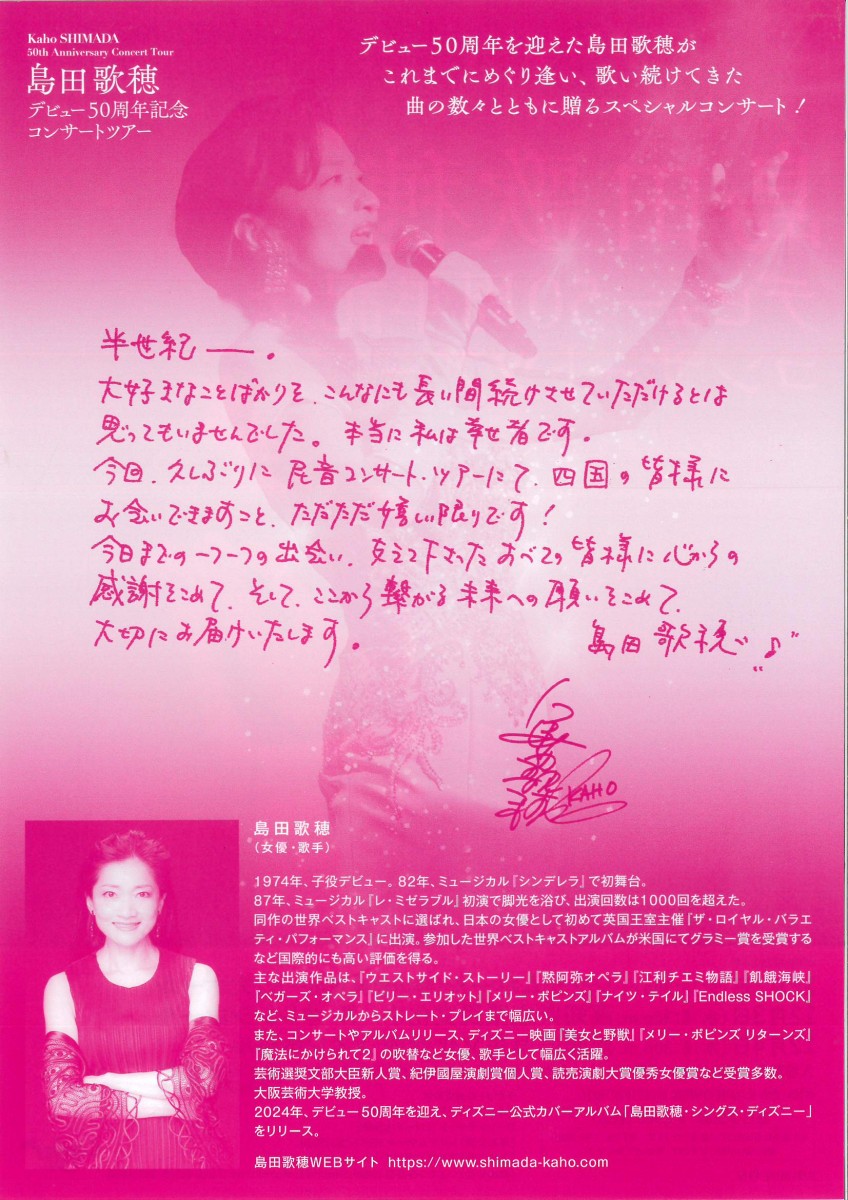 Kaho SHIMADA
50th Anniversary Concert Tour
島田歌穂
デビュー50周年記念
コンサートツアー
デビュー50周年を迎えた島田歌穂が
これまでにめぐり逢い、歌い続けてきた
曲の数々とともに贈るスペシャルコンサート!
半世紀——。
大好きなことばかりを、こんなにも長い間続けさせていただけるとは
思ってもいませんでした。本当に私は幸せ者です。
今回、久しぶりに民音コンサート・ツアーにて、四国の皆様に
お会いできますこと、ただただ嬉しい限りです!
今日までの一つ一つの出会い、支えて下さったすべての皆様に心からの
感謝をこめて、そして、ここから繋がる未来への願いをこめて、
大切にお届けいたします。
島田歌穂 ♪
KAHO
島田歌穂
(女優・歌手)
1974年、子役デビュー。82年、ミュージカル『シンデレラ』で初舞台。
87年、ミュージカル『レ・ミゼラブル』初演で脚光を浴び、出演回数は1000回を超えた。
同作の世界ベストキャストに選ばれ、日本の女優として初めて英国王室主催『ザ・ロイヤル・バラエ
ティ・パフォーマンス』に出演。参加した世界ベストキャストアルバムが米国にてグラミー賞を受賞する
など国際的にも高い評価を得る。
主な出演作品は、『ウエストサイド・ストーリー』『黙阿弥オペラ』『江利チエミ物語』『飢餓海峡』
『ベガーズ・オペラ』『ビリー・エリオット』『メリー・ポピンズ』『ナイツ・テイル』『Endless SHOCK』
など、ミュージカルからストレート・プレイまで幅広い。
また、コンサートやアルバムリリース、ディズニー映画『美女と野獣』『メリー・ポピンズ リターンズ』
『魔法にかけられて2』の吹替など女優、歌手として幅広く活躍。
芸術選奨文部大臣新人賞、紀伊國屋演劇賞個人賞、読売演劇大賞優秀女優賞など受賞多数。
大阪芸術大学教授。
2024年、デビュー50周年を迎え、ディズニー公式カバーアルバム「島田歌穂・シングス・ディズニー」
をリリース。
島田歌穂WEBサイト https://www.shimada-kaho.com